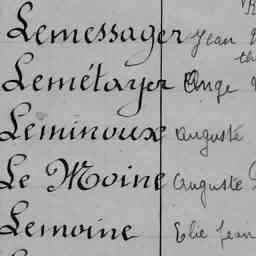 Lemessager Jean
Lemétayer Ange
Leminoux Auguste
Le Moine Auguste
Lemoine Elie Jean